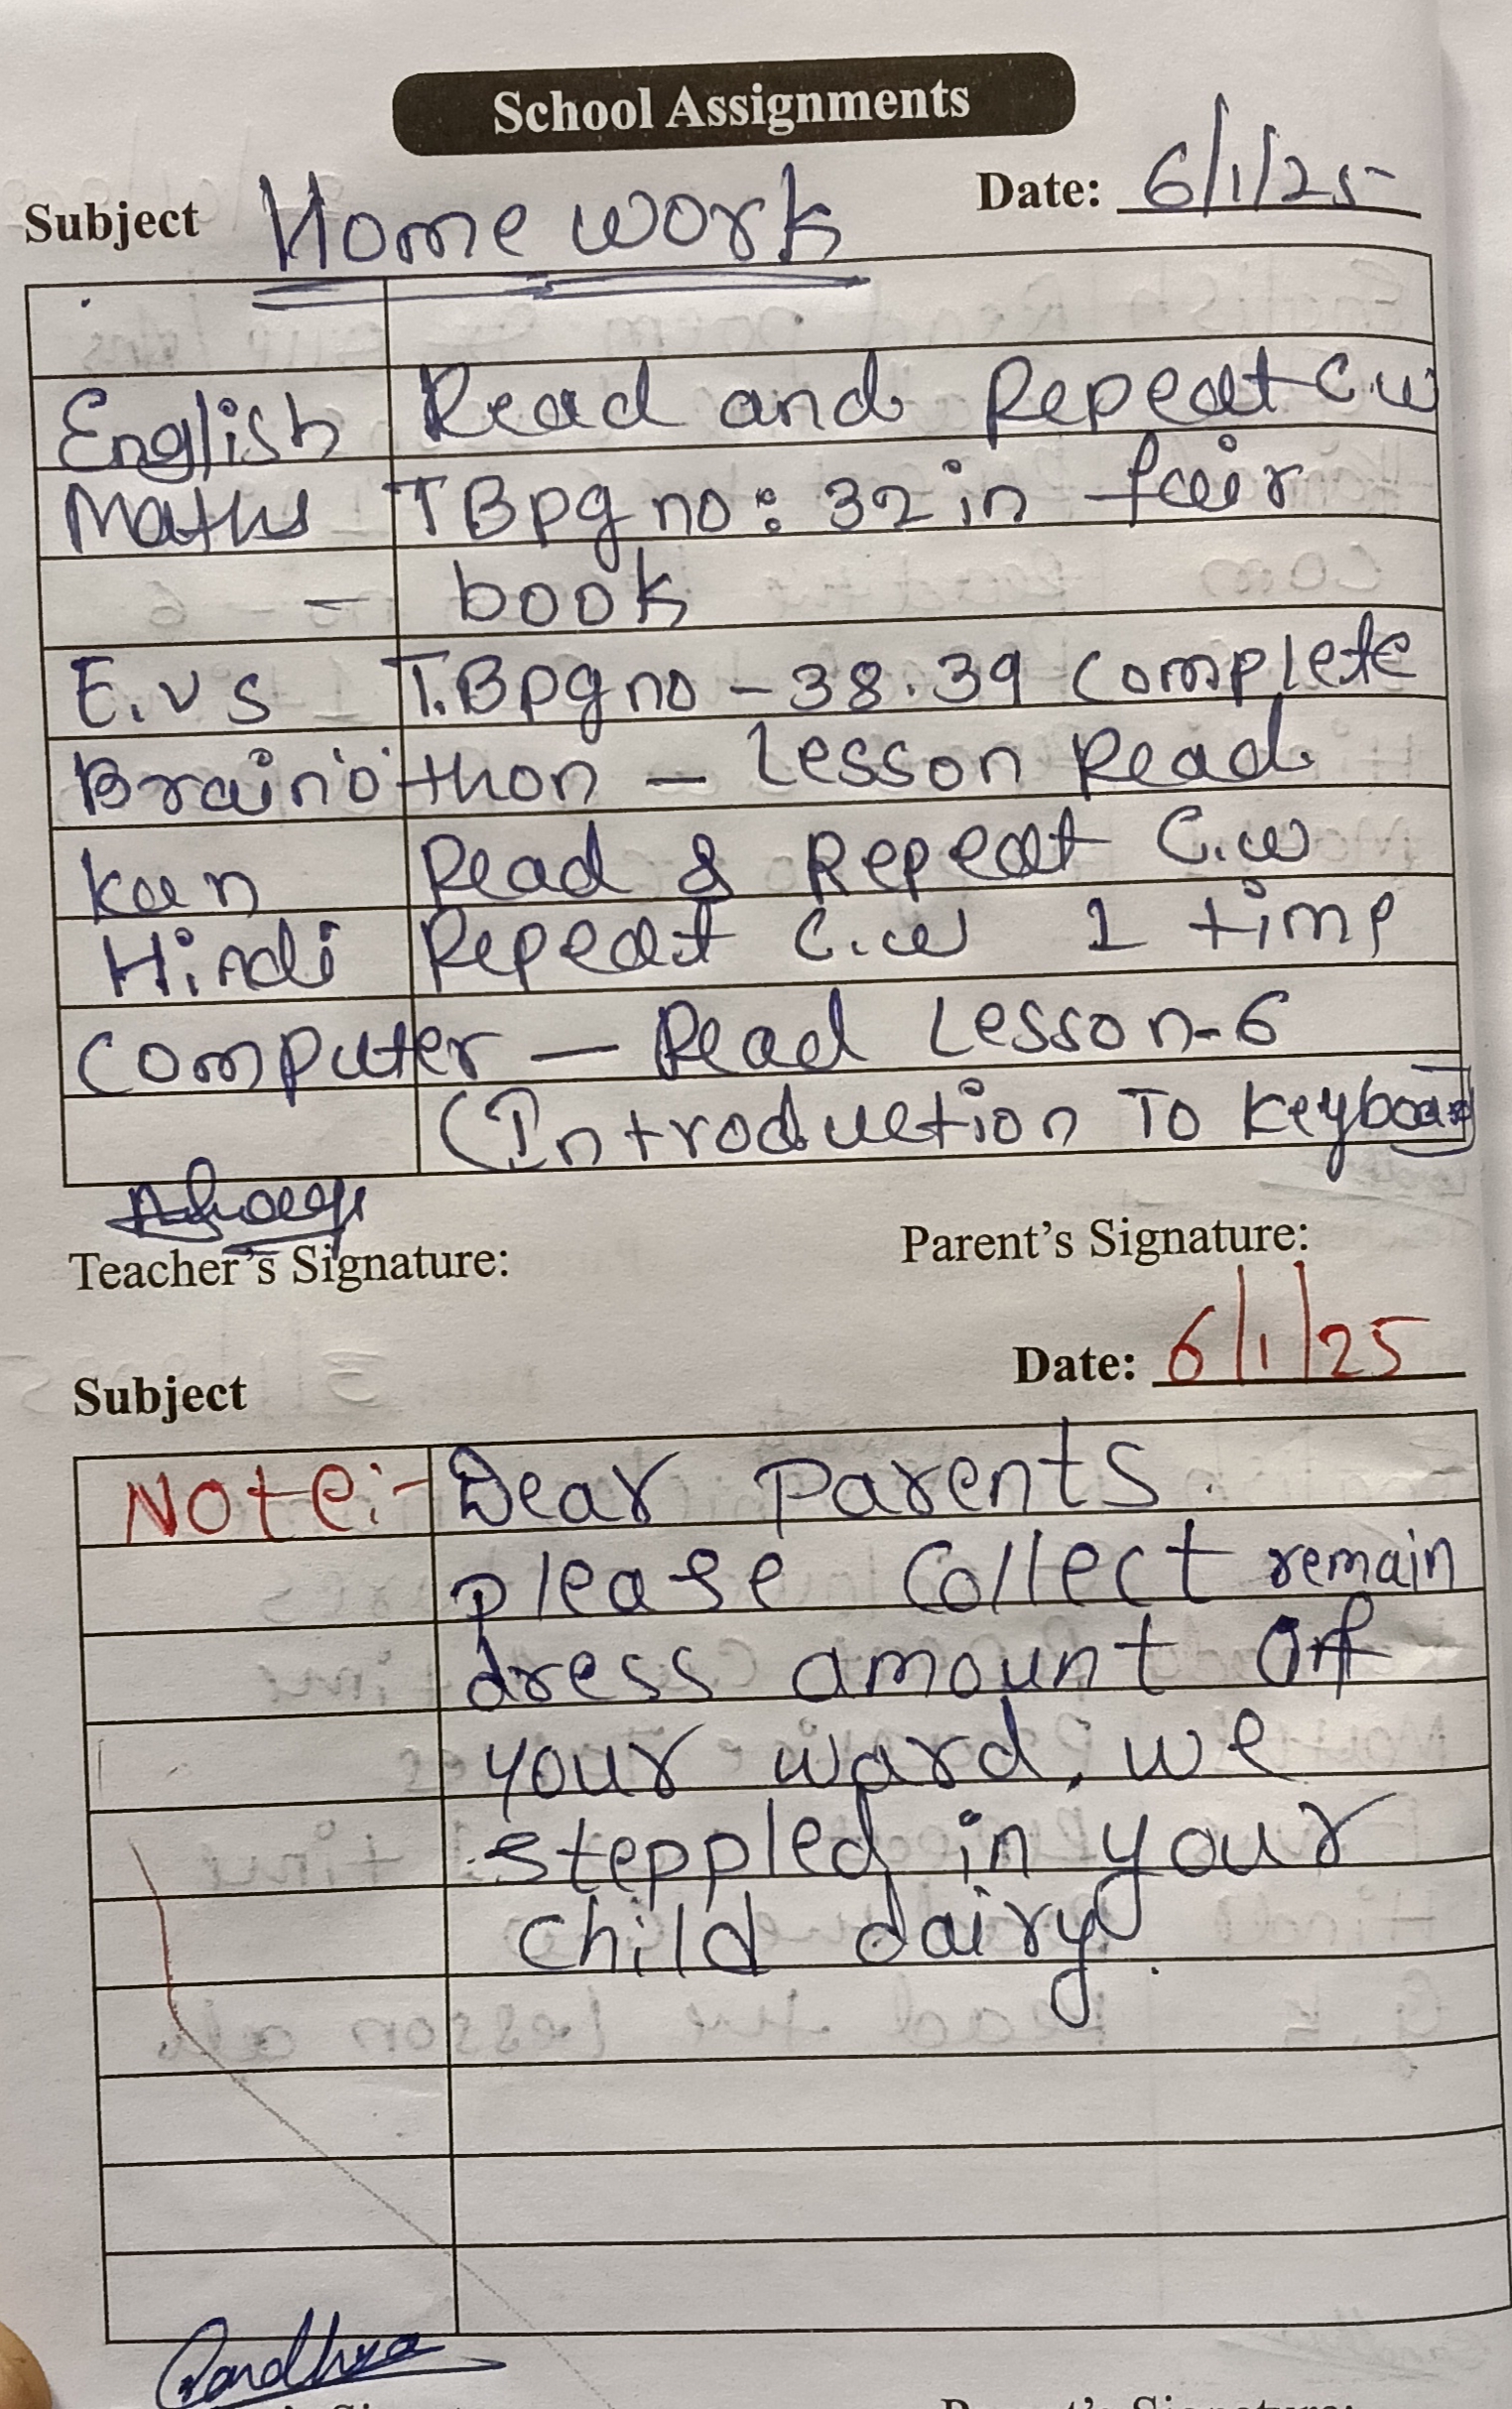 School Assignments
Subject Home work Date: 6/1/25
English Read and Repeat C.w
Maths TBpg no: 32 in fair
- book
E.v s T.Bpg no - 38.39 complete
Brain'o'thon - Lesson Read
kan Read & Repeat C.w
Hindi Repeat C.w 1 time
Computer - Read Lesson-6
(Introduction To Keyboard)
Teacher's Signature: Parent's Signature:
Subject Date: 6/1/25
Note:- Dear Parents.
please Collect remain
dress amount of
your ward, we
steppled in your
child dairy.